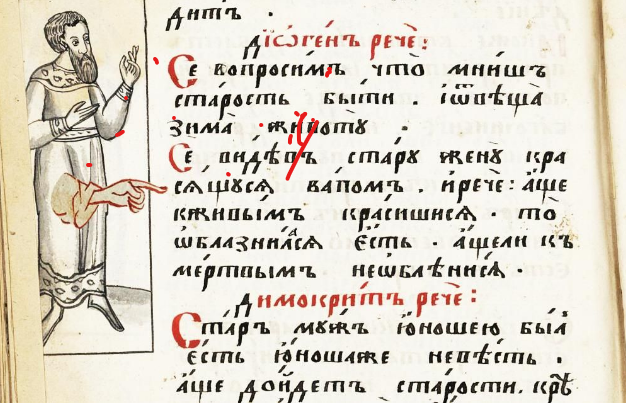 дитъ .
Дїѡгенъ рече:
Се вопросимъ что мнишъ
старость быти . їѿвѣща
зима животꙋ .
Се видѣвъ старꙋ женꙋ кра
сѧщꙋсѧ вапомъ . ирече: аще
кживымъ красишисѧ . то
ѡблазнилаⷭ҇ѧ єсть . ащели къ
мертвымъ неѡблѣнисѧ .
Димокритъ рече:
Старъ мꙋжъ юношею быⷧ҇
єсть юношаже невѣсть .
аще дойдетъ старости.